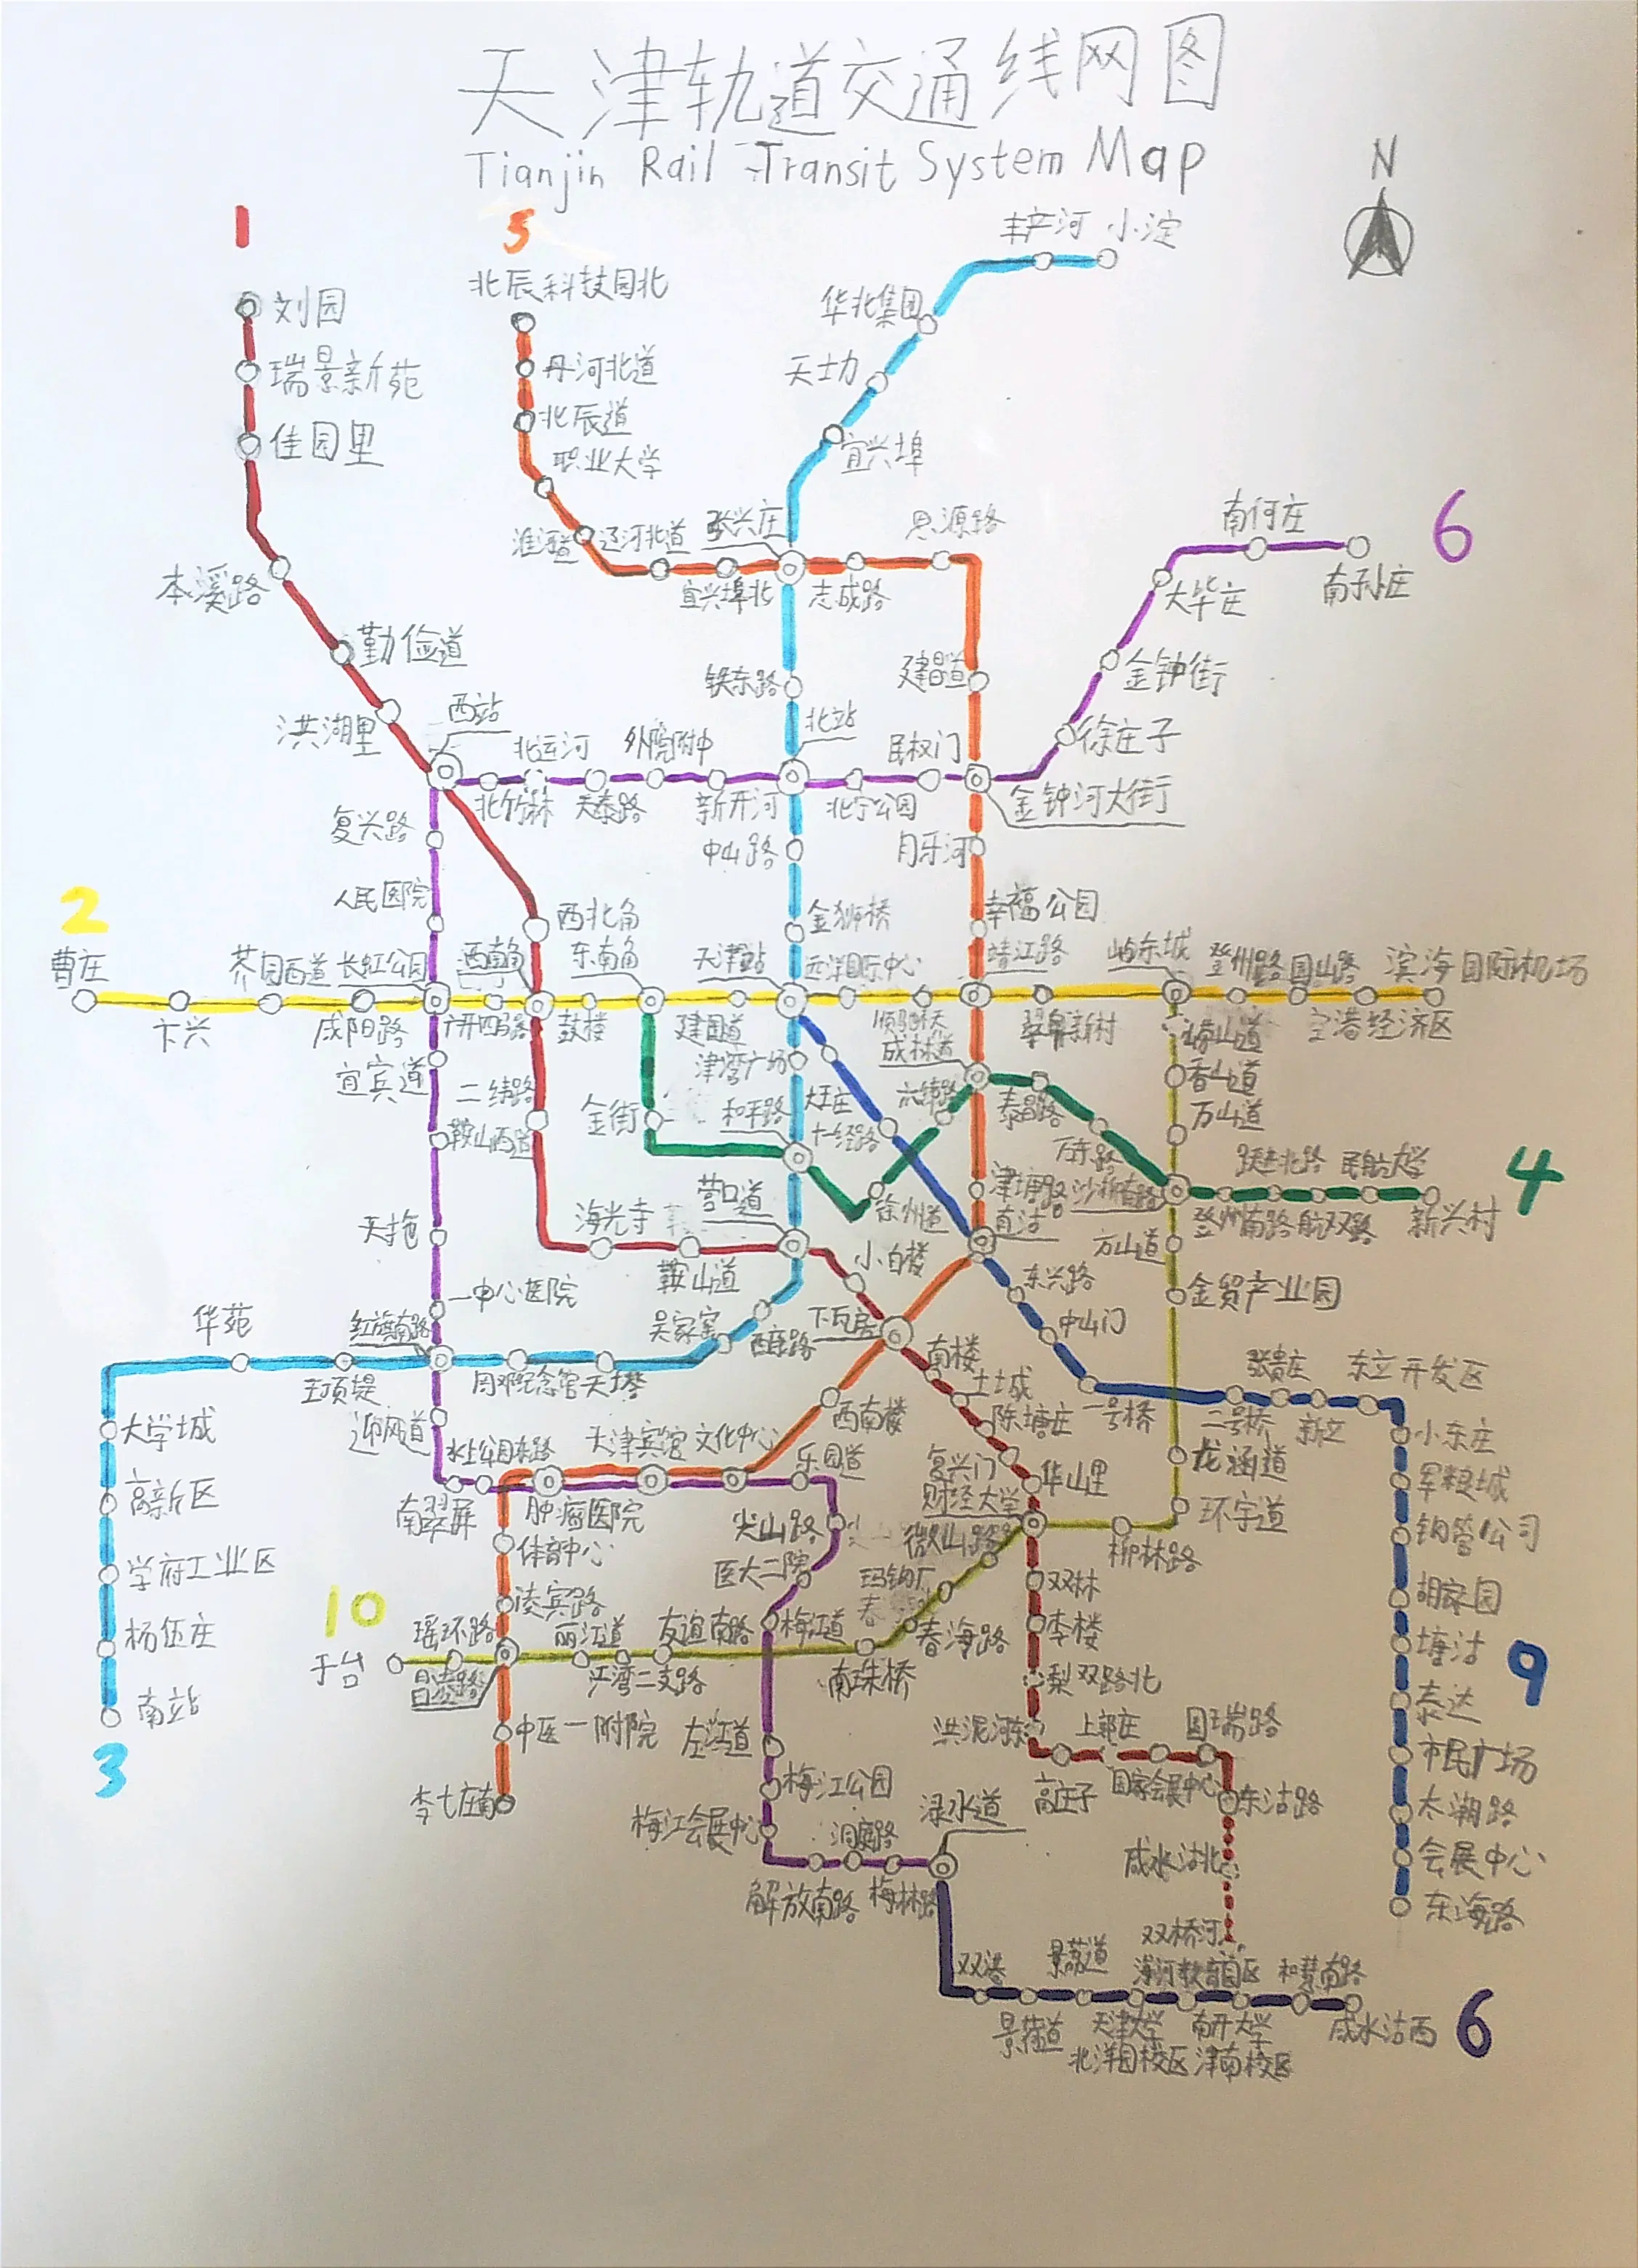 天津轨道交通线网图
Tianjin Rail Transit System Map
N
1
刘园
瑞景新苑
佳园里
本溪路
勤俭道
洪湖里
西站
5
北辰科技园北
丹河北道
北辰道
职业大学
淮河道
辽河北道
宜兴埠北
张兴庄
志成路
思源路
建昌道
丰产河
小淀
华北集团
天士力
宜兴埠
铁东路
北站
中山路
金狮桥
6
南何庄
南孙庄
大毕庄
金钟街
徐庄子
金钟河大街
民权门
北宁公园
新开河
外院附中
天泰路
北运河
北竹林
复兴路
人民医院
月牙河
幸福公园
靖江路
西北角
2
曹庄
卞兴
芥园西道
咸阳路
长虹公园
广开四马路
西南角
鼓楼
东南角
建国道
天津站
远洋国际中心
顺驰桥
成林道
翠阜新村
屿东城
登州路
国山路
空港经济区
滨海国际机场
宜宾道
鞍山西道
天拖
一中心医院
红旗南路
迎风道
南翠屏
水上公园东路
二纬路
海光寺
鞍山道
营口道
小白楼
下瓦房
南楼
土城
陈塘庄
复兴门
华山里
财经大学
双林
李楼
梨双路北
洪泥河东
高庄子
上郭庄
国家会展中心
国瑞路
东沽路
咸水沽北
双桥河
金街
和平路
津湾广场
徐州道
六纬路
泰昌路
万东路
沙柳南路
登州南路
跃进北路
航双路
民航大学
新兴村
4
大王庄
十一经路
津塘路
直沽
东兴路
中山门
一号桥
二号桥
张贵庄
新立
东丽开发区
小东庄
军粮城
钢管公司
胡家园
塘沽
泰达
市民广场
太湖路
会展中心
东海路
9
崂山道
香山道
万山道
方山道
金贸产业园
龙涵道
环宇道
柳林路
微山路
玛钢厂
春海路
南珠桥
友谊南路
江湾二支路
丽江道
昌凌路
瑶环路
于台
10
吴家窑
西康路
天塔
周邓纪念馆
王顶堤
华苑
大学城
高新区
学府工业区
杨伍庄
南站
3
西南楼
文化中心
天津宾馆
肿瘤医院
体育中心
凌宾路
中医一附院
李七庄南
乐园道
尖山路
医大二院
梅江道
左江道
梅江公园
梅江会展中心
解放南路
洞庭路
梅林路
渌水道
双港
景荔道
天津大学
北洋园校区
海河教育园区
南开大学
津南校区
和慧南路
咸水沽西
6